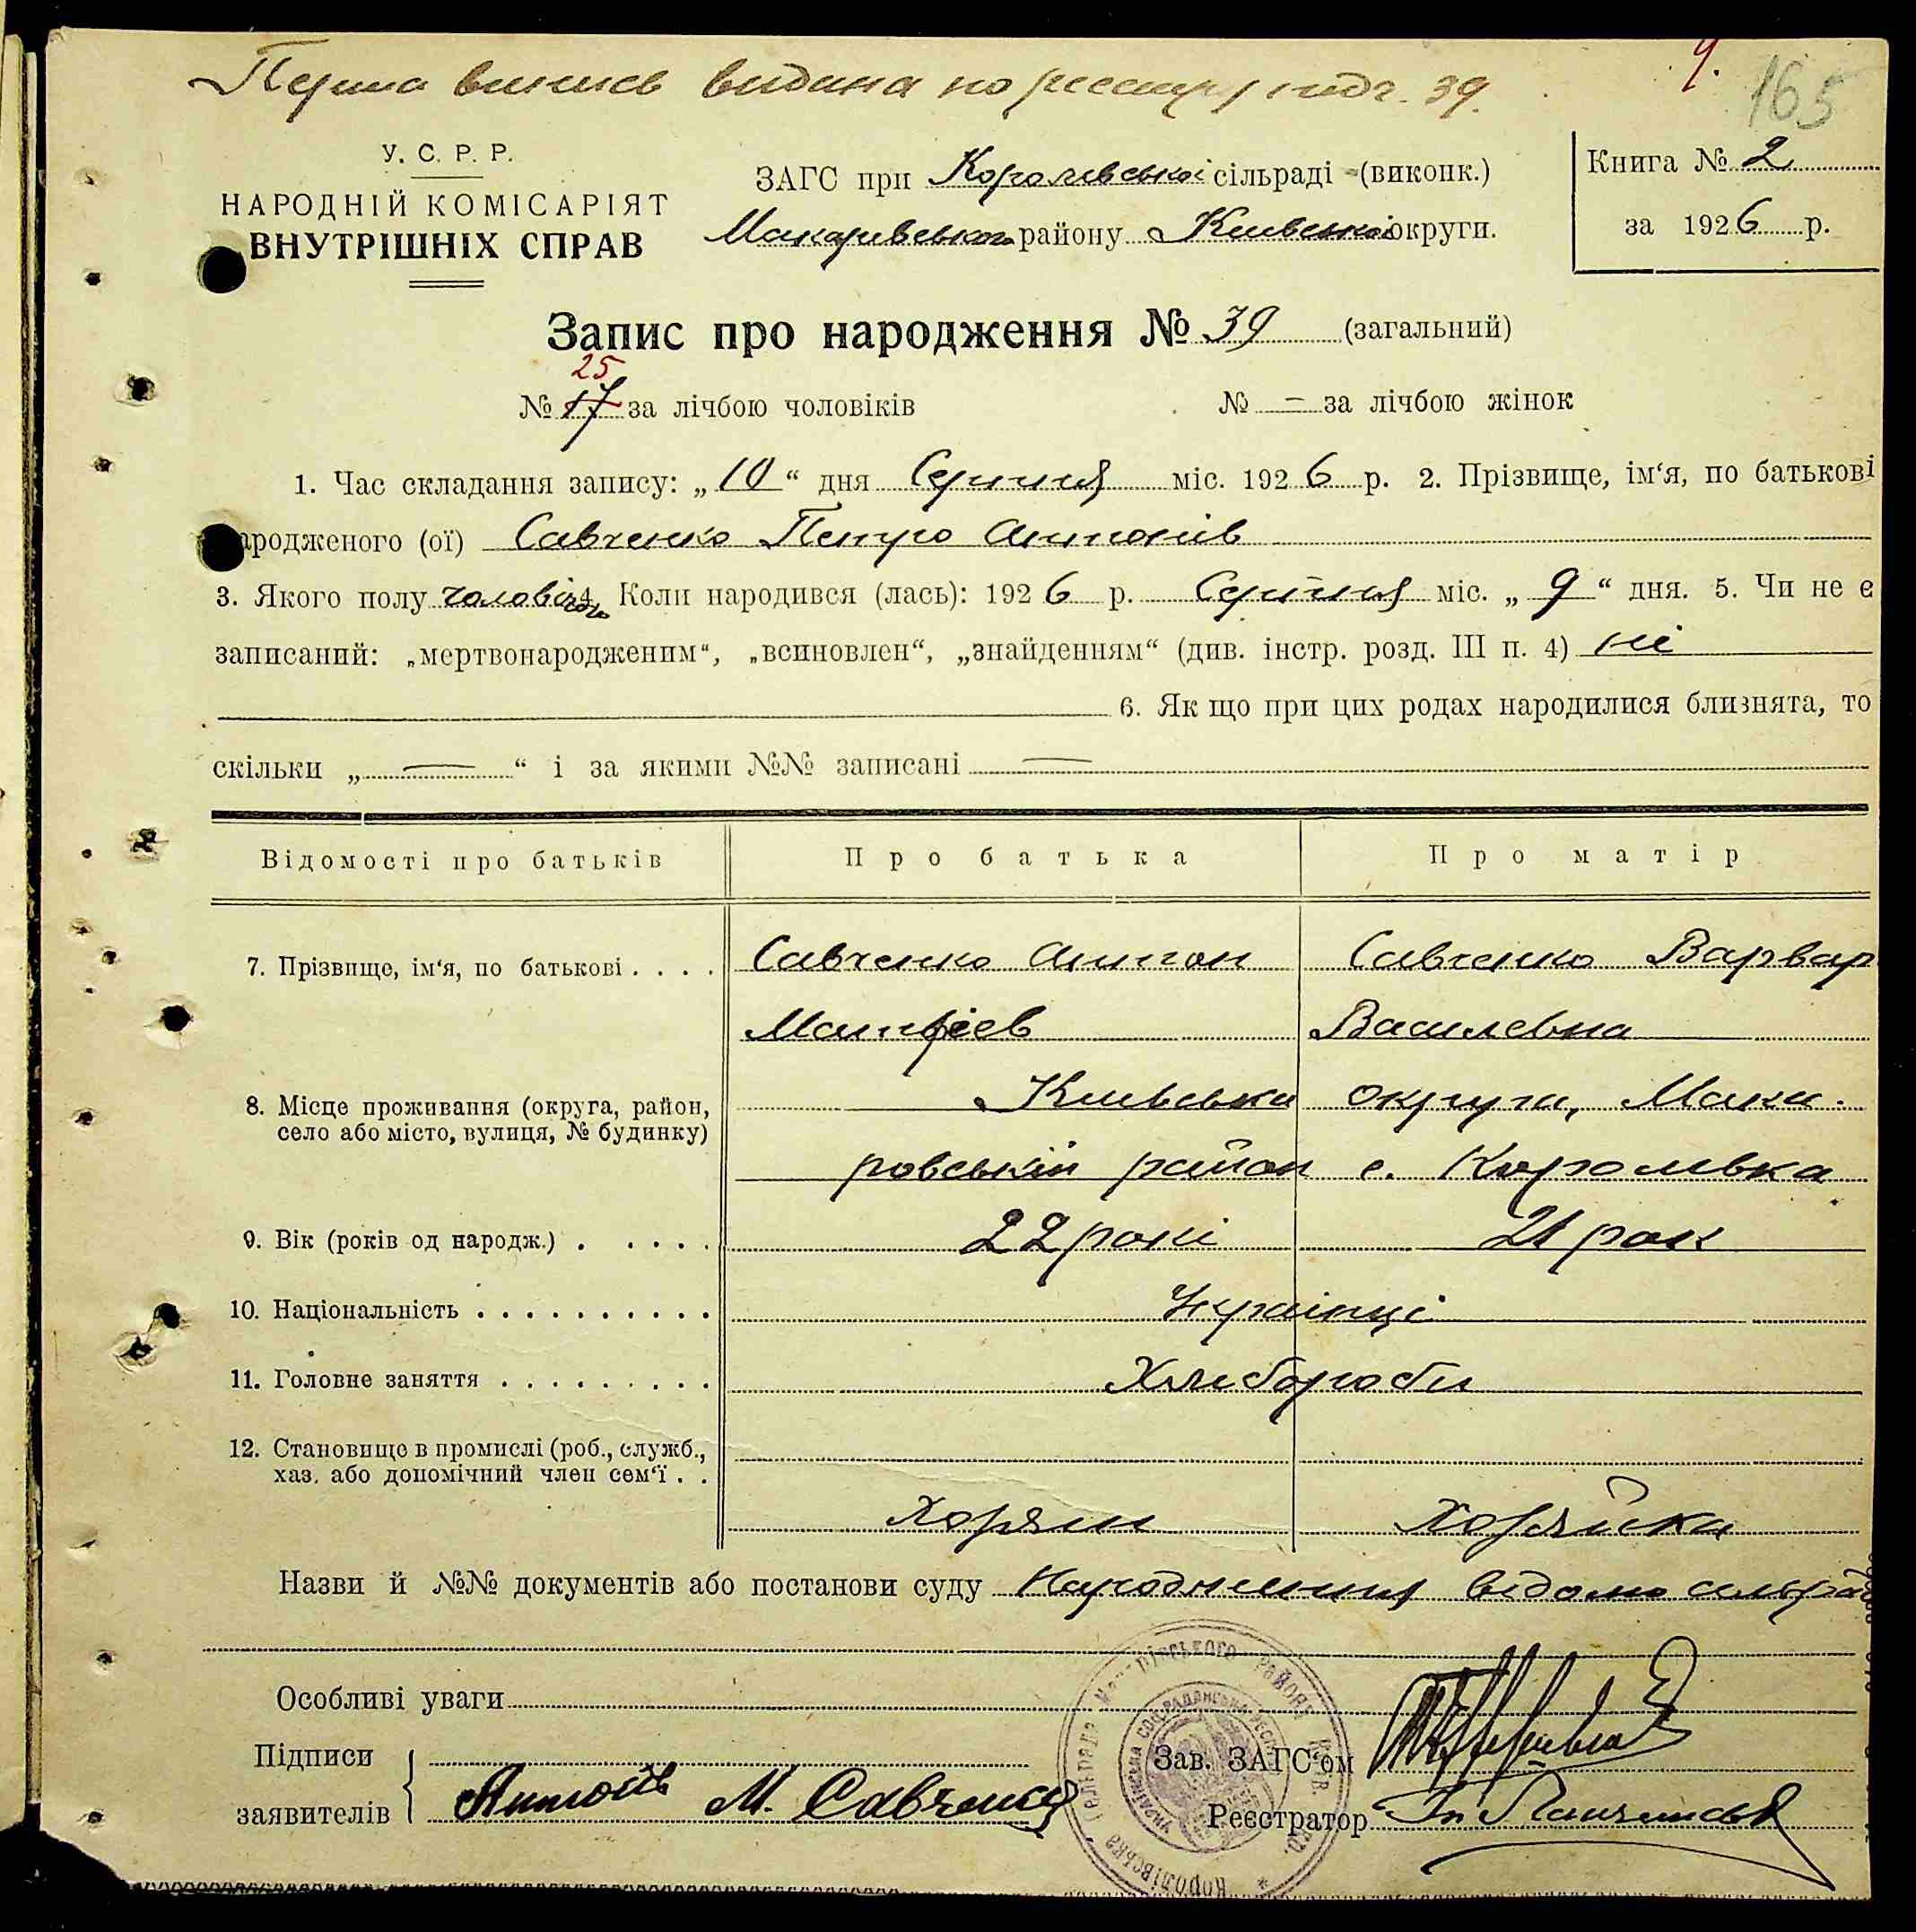 Перша випись видана по реестру под ч. 39.
ч.
165
У. С. Р. Р.
НАРОДНІЙ КОМІСАРІЯТ
ВНУТРІШНІХ СПРАВ
ЗАГС при Королевській сільраді (виконк.)
Макаривського району Київської округи.
Книга № 2
за 1926 р.
Запис про народження № 39 (загальний)
25
№ 17 за лічбою чоловіків № — за лічбою жінок
1. Час складання запису: „10“ дня Серпня міс. 1926 р. 2. Прізвище, ім‘я, по батькові
ародженого (ої) Савченко Петро Антонів
3. Якого полу чоловічого 4. Коли народився (лась): 1926 р. Серпня міс. „9“ дня. 5. Чи не є
записаний: „мертвонародженим“, „всиновлен“, „знайденням“ (див. інстр. розд. III п. 4) ні
6. Як що при цих родах народилися близнята, то
скільки „—“ і за якими №№ записані —
Відомості про батьків Про батька Про матір
7. Прізвище, ім‘я, по батькові . . . . Савченко Антон Савченко Варвар
Матфіев Василевна
8. Місце проживання (округа, район, Київська округа, Мака-
село або місто, вулиця, № будинку) ровський район с. Королівка
9. Вік (років од народж.) . . . . . 22 рокі 21 рок
10. Національність . . . . . . . . . . Украінці
11. Головне заняття . . . . . . . . . Хлибороби
12. Становище в промислі (роб., служб.,
хаз. або допомічний член сем‘ї . .
Хозяин Хозяйка
Назви й №№ документів або постанови суду Народження відомо сильрад
Особливі уваги
Підписи
заявителів Антонів М. Савченко
Зав. ЗАГС‘ом
Реєстратор